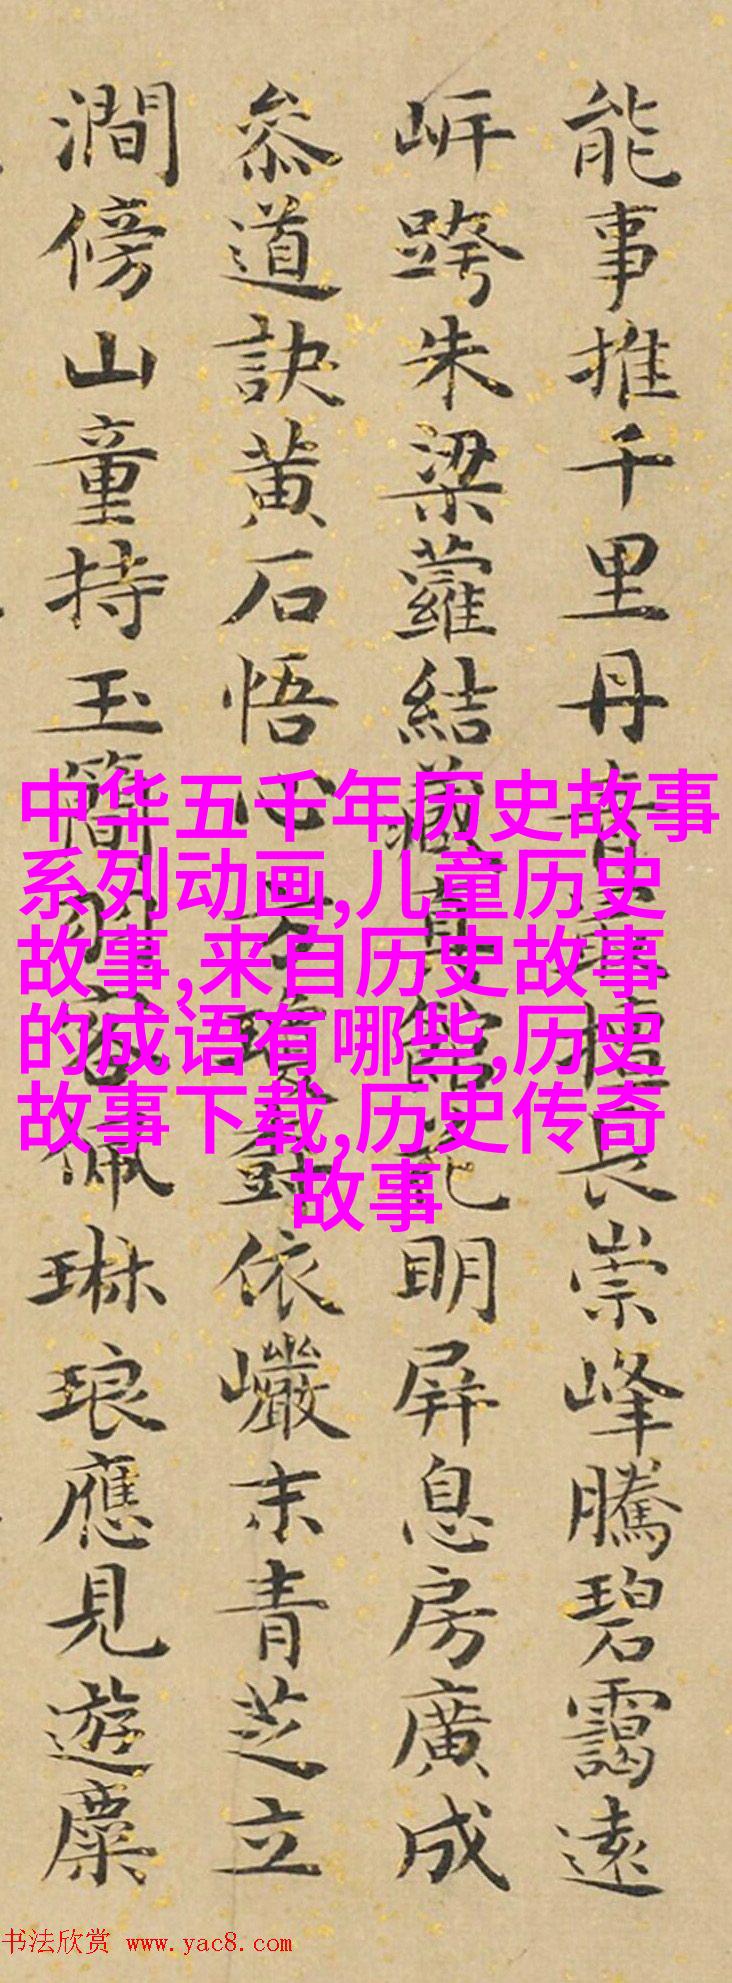 能事推千里丹青擅長崇峰騰碧靄遠
岍跨朱梁蘿結藏書館花明屏息房廣成
叅道訣黃石悟心對依巖末青芝立
澗傍山童持玉簡佩琳琅應見遊麋
中华五千年历史故事
系列动画,儿童历史
故事,来自历史故事
的成语有哪些,历史
故事下载,历史传奇
故事
书法欣赏 www.yac8.com